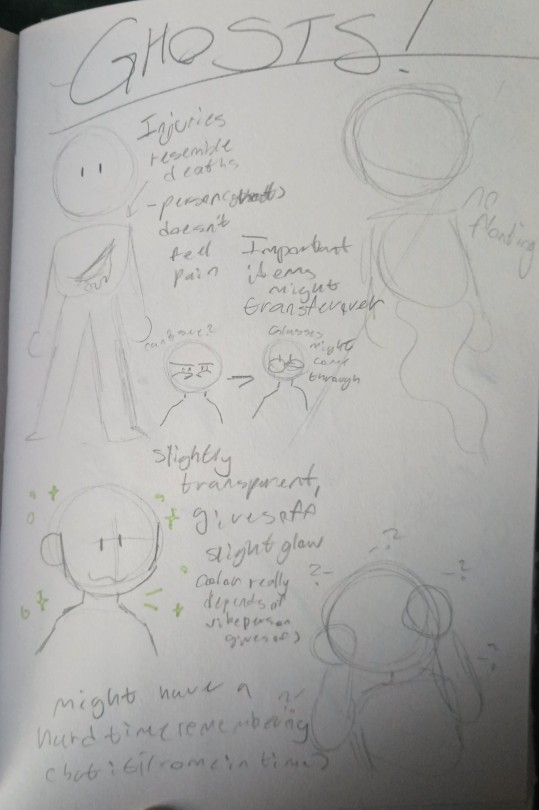 GHOSTS!
Injuries
resemble
deaths
- person
doesn't
feel
pain
no
floating
Important
items
might
transferover
Glasses
might
come
through
slightly
transparent,
givesoff
slight glow
color really
depends of
vibe person
gives of)
might have a
hard time remembering
(but itll come in time)